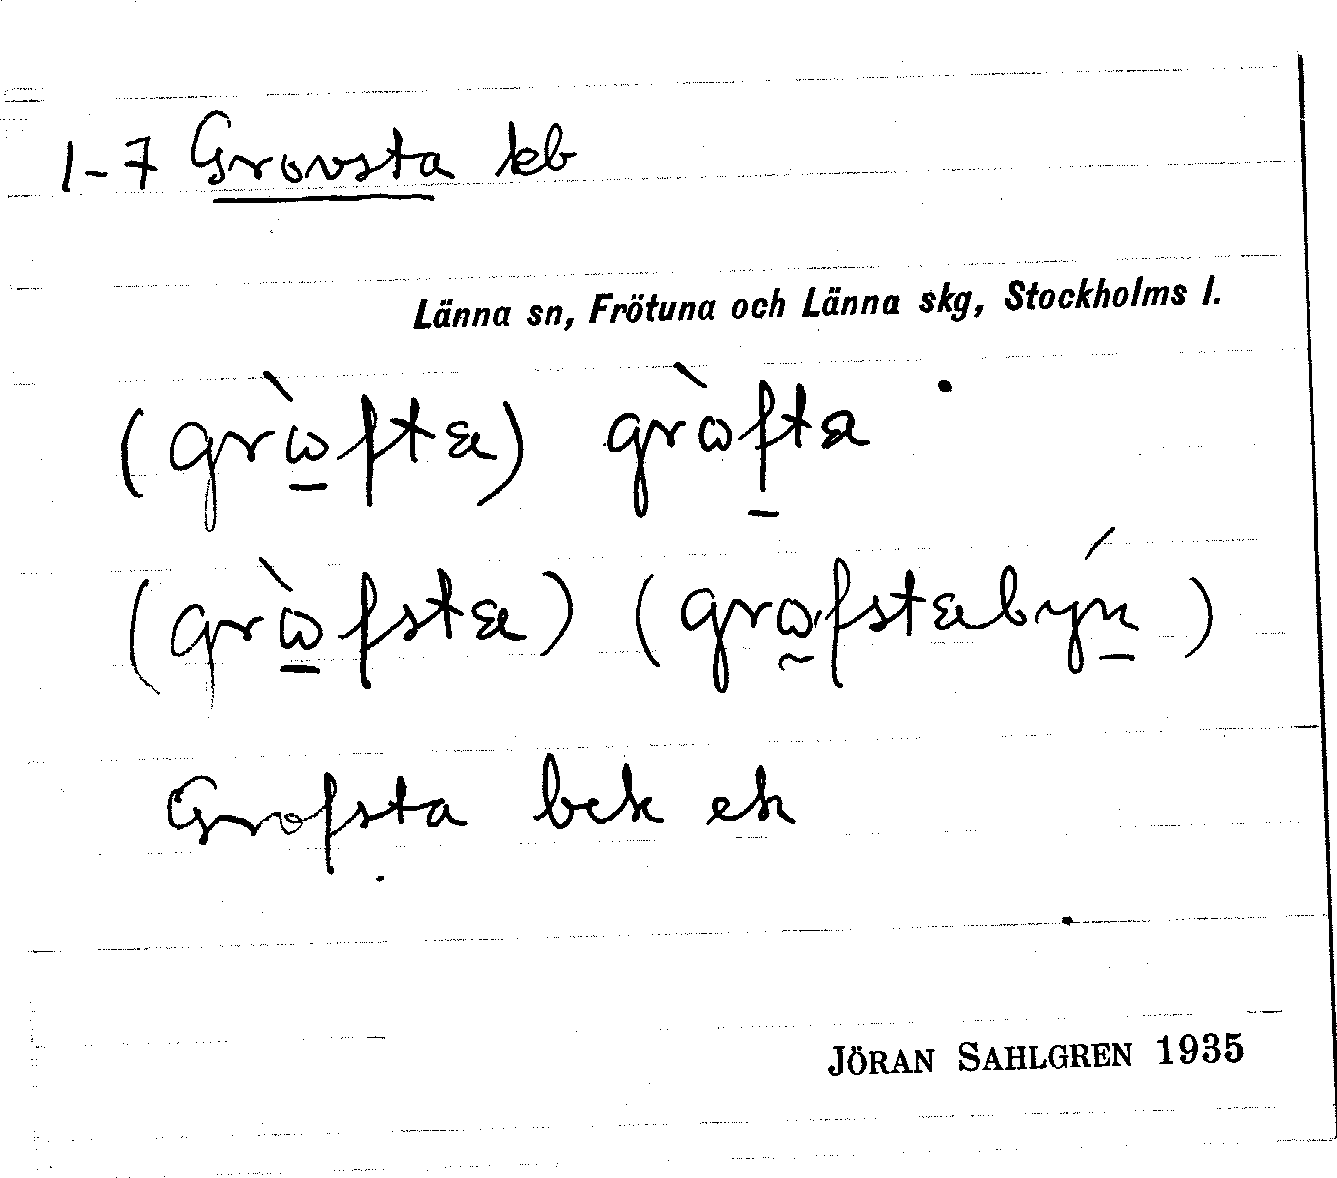 1-7 Grovsta kb
Länna sn, Frötuna och Länna skg, Stockholms l.
(grὼ̱fta) grὼf̱ta
(grὼ̱fsta) (grω̰fstabýṉ)
Grofsta bek ek
JÖRAN SAHLGREN 1935